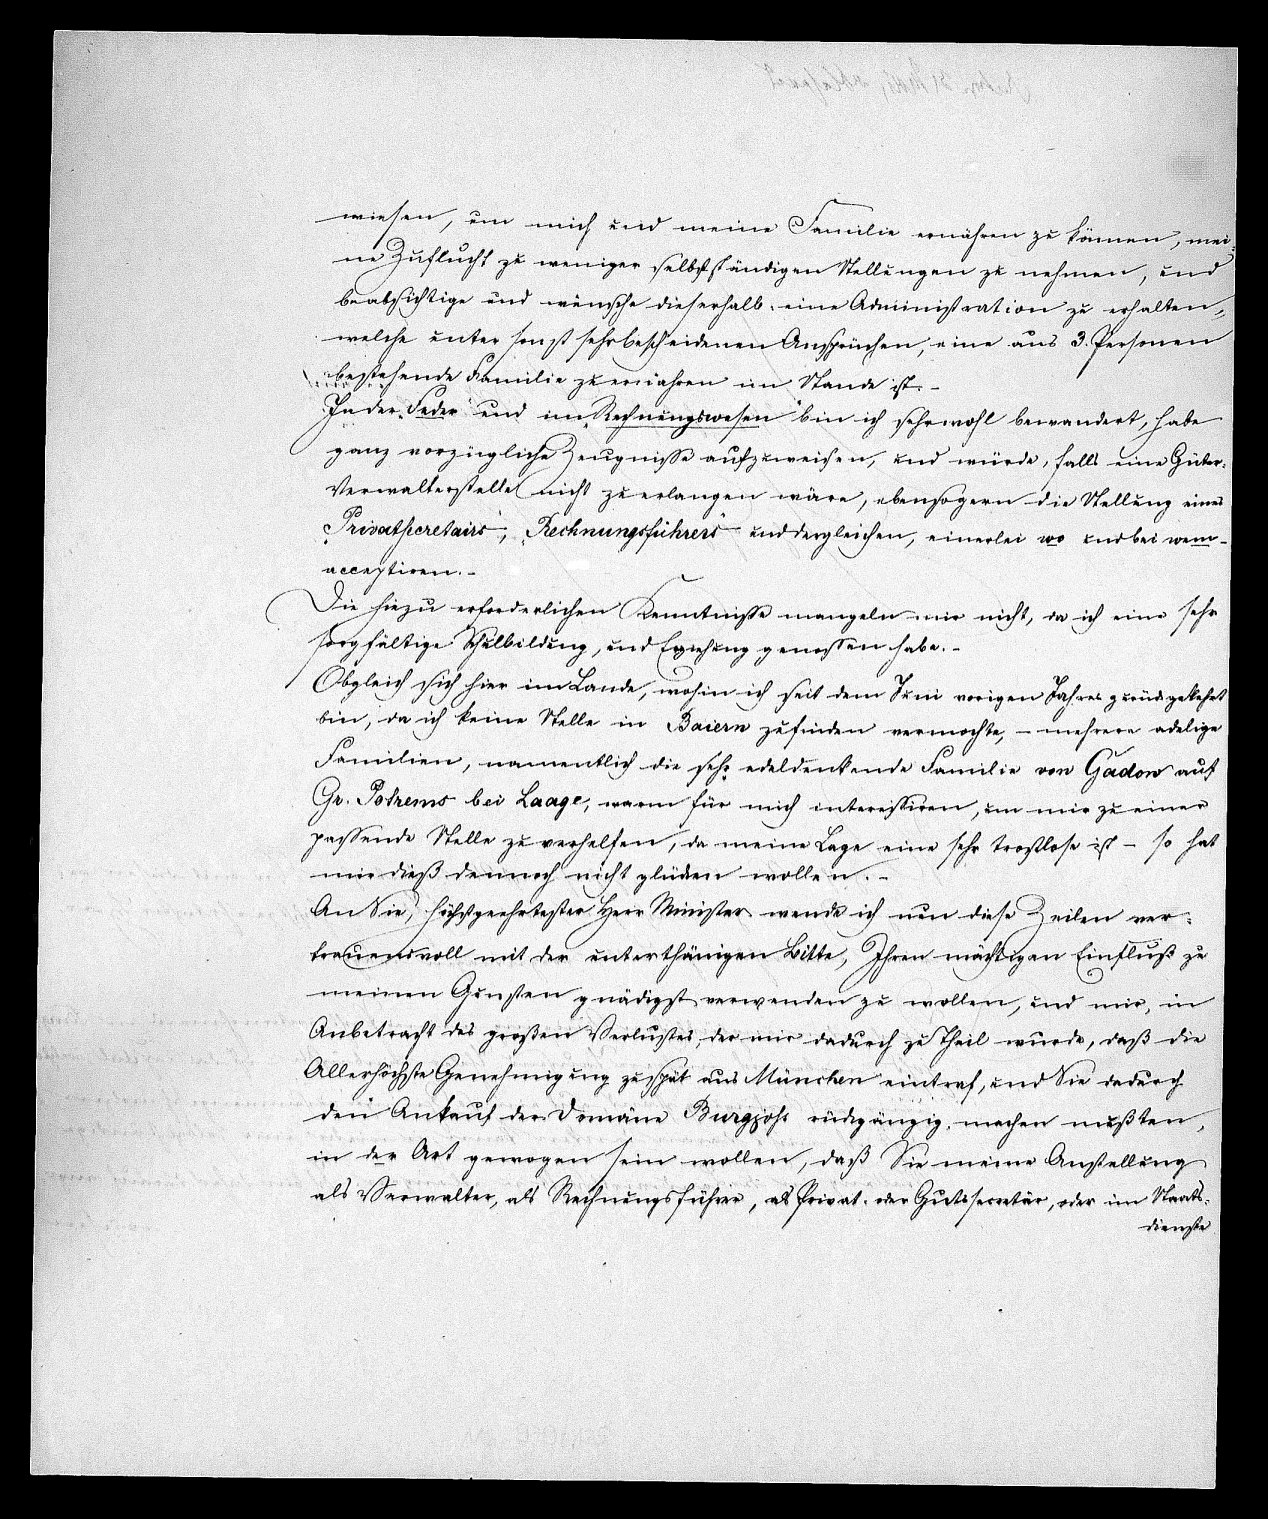 wiesen, um mich und meine Familie ernähren zu können, mei-
ne Zuflucht zu weniger selbstständigen Stellungen zu nehmen, und
beabsichtige und wünsche dieserhalb eine Administration zu erhalten,
welche unter sonst sehr bescheidenen Ansprüchen, eine aus 3. Personen
bestehende Familie zu ernähren im Stande ist. -
In der „Feder" und im „Rechnungswesen" bin ich sehr wohl bewandert, habe
ganz vorzügliche Zeugnisse aufzuweisen, und würde, falls eine Güter-
Verwalterstelle nicht zu erlangen wäre, ebenso gern die Stellung eines
„Privatsecretairs", „Rechnungsführers" und dergleichen, einerlei wo und bei wem -
acceptiren. -
Die hiezu erforderlichen Kenntnisse mangeln mir nicht, da ich eine sehr
sorgfältige Schulbildung, und Erziehung genossen habe. -
Obgleich sich hier im Lande, wohin ich seit dem Juni vorigen Jahres zurückgekehrt
bin, da ich keine Stelle in Baiern zu finden vermochte, - mehrere adelige
Familien, namentlich die sehr edeldenkende Familie von Gadow auf
Gr. Potrems bei Laage, warm für mich interessiren, um mir zu einer
passende Stelle zu verhelfen, da meine Lage eine sehr trostlose ist - so hat
mir dieß dennoch nicht glücken wollen. -
An Sie, höchstgeehrtester Herr Minister wende ich nun diese Zeilen ver-
trauensvoll mit der unterthänigen Bitte, Ihren mächtigen Einfluß zu
meinen Gunsten gnädigst verwenden zu wollen, und mir, in
Anbetracht des großen Verlustes, der mir dadurch zu Theil wurde, daß die
Allerhöchste Genehmigung zu spät aus München eintraf, und Sie dadurch
den Ankauf der Domäne Burgjoß rückgängig machen mußten,
in der Art gewogen sein wollen, daß Sie meine Anstellung
als Verwalter, als Rechnungsführer, als Privat- oder Gutssecretär, oder im Staats-
dienste